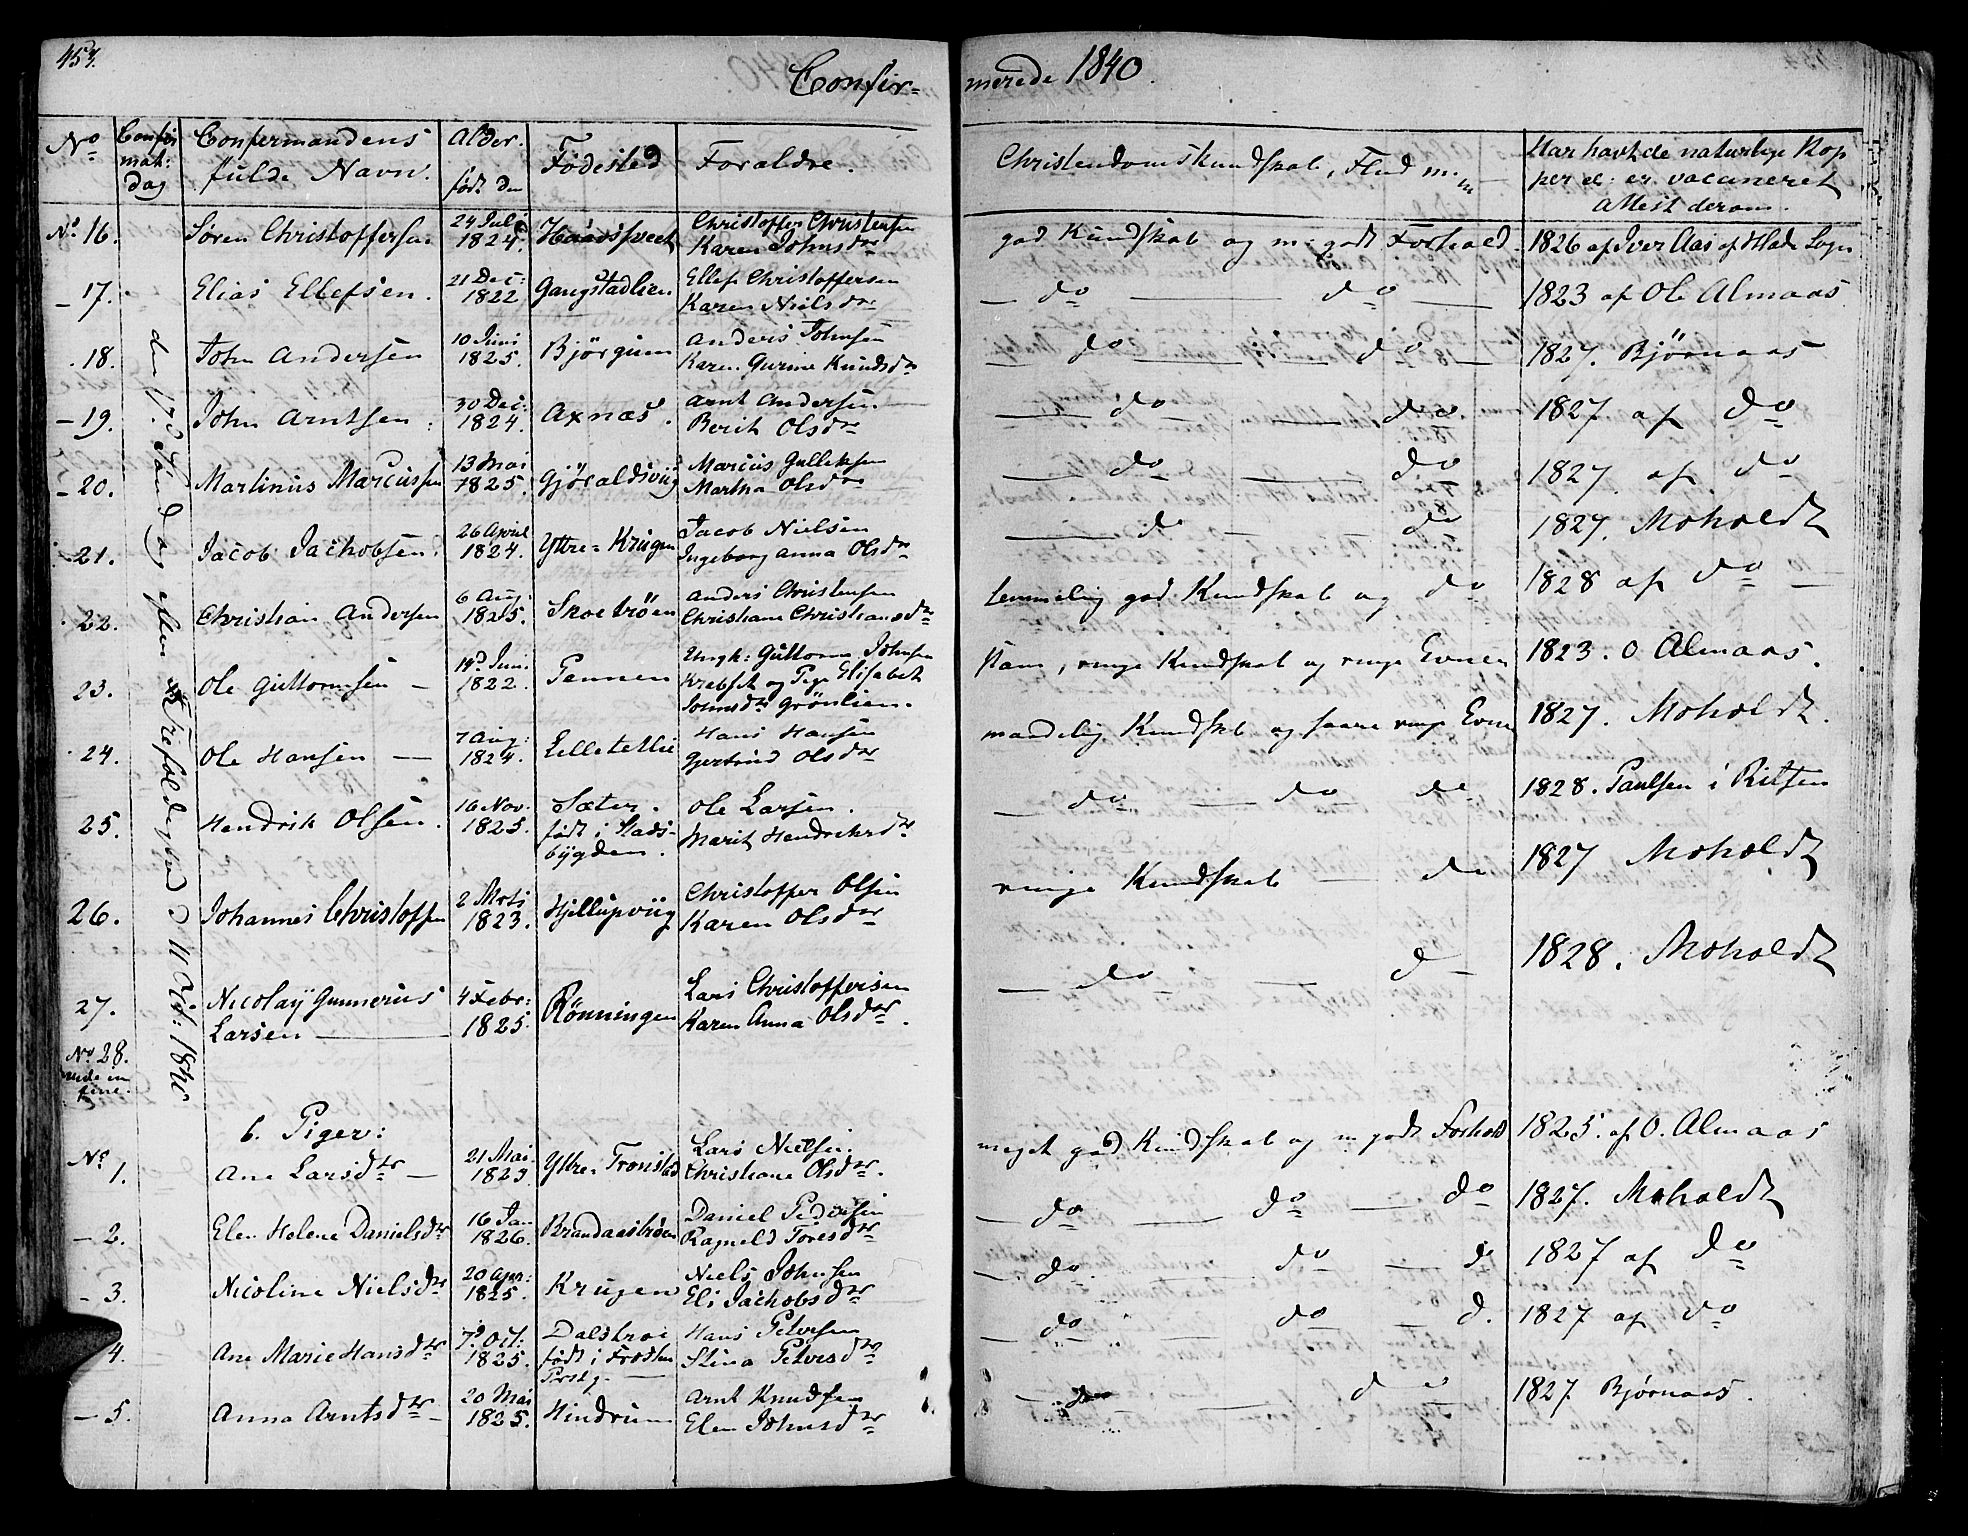 457.
Confir= merede 1840.
No Confirmat: dag Confermandens fulde Navn. Alder. født den Fødested Forældre. Christendomskundskab, Flid m.m. Har havt de naturlige Kopper el: er vaccineret Attest derom.
den 17de Søndag efter Trefoldighed d 11 Oct: 1840
No. 16. Søren Christoffersen 24 Juli 1824. Christoffer Christensen Karen Johnsdtr god Kundskab og m: godt Forhold. 1826 af Iver Aas af Hlade Sogn
- 17. Elias Ellefsen. 21 Dec: 1822 Gangstadlien Ellef Christoffersen Karen Nielsdtr - do - do - 1823 af Ole Almaas
18. John Andersen 10 Juni 1825. Bjørgum Anders Johnsen Karen Gurine Knudsdtr - do - do - 1827. Bjørnaas
- 19. John Arntsen. 30 Dec: 1824. Axnæs. Arnt Andersen Berit Olsdtr - do - do. 1827 af do
- 20. Martinus Marcussen 13 Mai 1825. Gjøraldsviig Marcus Gulleksen Martha Olsdtr - do - do 1827. af do
- 21. Jacob Jachobsen. 26 April 1824. Yttre= Krugen Jacob Nielsen Ingeborg Anna Olsdtr - do - do 1827. Moholdt
22. Christian Andersen 6 Aug: 1825. Skoetrøen Anders Christensen Christiane Christiansdtr temmelig god Kundskab og do 1828 af do -
23. Ole Guttormsen - 19d Juni 1822. Pennen Ungk: Guttorm Johnsen Krebset og Pige Elisabet Johnsdtr Grønlien. ringe Kundskab og ringe Evner 1823. O Almaas.
24. Ole Hansen - 7 Aug: 1824. Lilletellie Hans Hansen Gjertrud Olsdtr maadelig Kundskab og saare ringe Evner 1827. Moholdt.
25. Hendrik Olsen. 16 Nov. 1825. Sæter. født i Stads-bygden. Ole Larsen. Marit Hendriksdtr - do - do do 1828. Paulsen i Ritsen
26. Johannes Christoffersen 2 Mrts 1823. Hjellupviig Christoffer Olsen Karen Olsdtr ringe Kundskab - do 1827 Moholdt
27. Nicolaÿ Gunnerius Larsen - 4 Febr: 1825. Rønningen Lars Christoffersen Karen Anna Olsdtr. - do - do 1828. Moholdt
No. 28. vide in fine.
b. Piger:
No. 1. Ane Larsdtr - 21 Mai. 1823 Yttre Tronstad Lars Nielsen. Christiane Olsdtr. meget god Kundskab og m godt Forhold 1825. af O. Almaas
- 2. Elen Helene Danielsdtr 16 Jan 1826. Brandaastrøen Daniel Pedersen Ragneld Toresdtr - do - do - do 1827. Moholdt
- 3. Nicoline Nielsdtr 20 Apr: 1825. Krugen Niels Johnsen Eli Jachobsdtr - do - do - do 1827 af do
4. Ane Marie Hansdtr 7d Oct: 1825. Dalstroe født i Frosten Prstg. - Hans Petersen Stina Petersdtr - do - do - d. 1827 af do
- 5. Anna Arntsdtr - 20 Mai 1825. Hindrum Arnt Knudsen Elen Johnsdtr - do - do 1827 Bjørnaas.